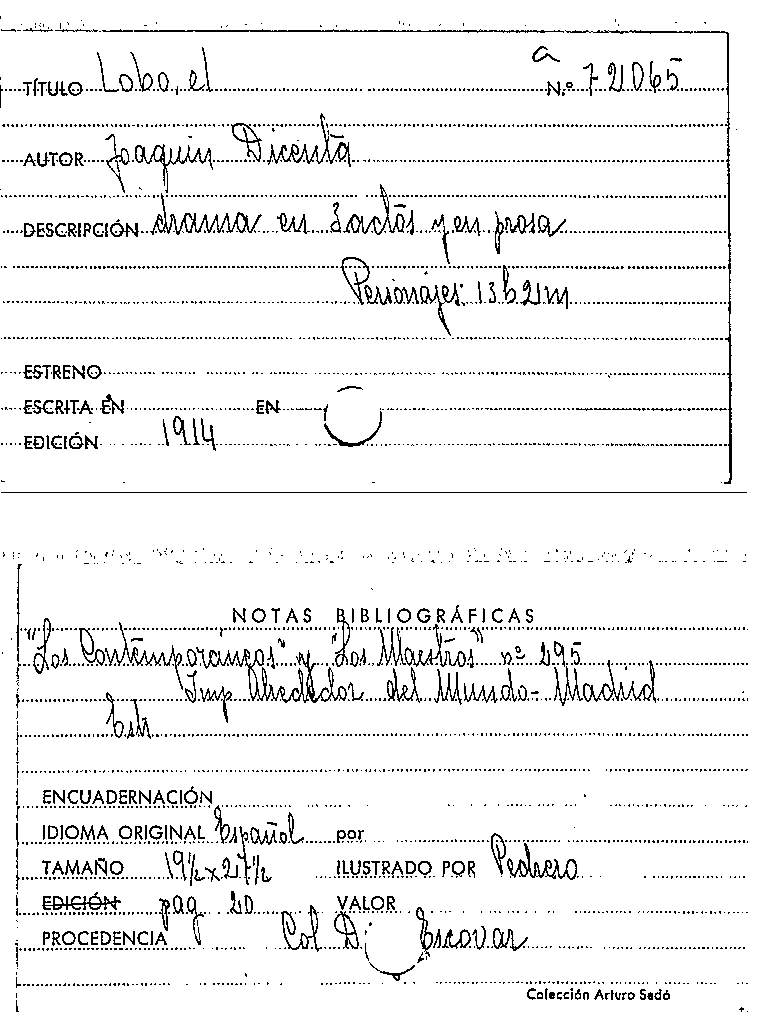 a
TÍTULO Lobo, el N.º 721065
AUTOR Joaquin Dicenta
DESCRIPCIÓN drama en 3 actos y en prosa
Personajes: 13 h 21 m
ESTRENO
ESCRITA EN EN
EDICIÓN 1914
NOTAS BIBLIOGRÁFICAS
"Los Contemporáneos" y "Los Maestros" nº 295
Imp Alrededor del Mundo - Madrid
ENCUADERNACIÓN
IDIOMA ORIGINAL Español por
TAMAÑO 19½ x 27½ ILUSTRADO POR Pedrero
EDICIÓN pag 20 VALOR
PROCEDENCIA Col Escovar
Colección Arturo Sedó